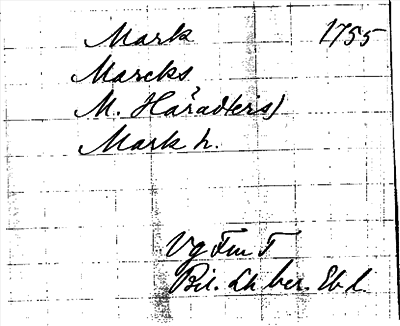 Mark 1755
Marcks
M. Häradt(is)
Mark h.
Vg Fm T
Bil. Lh ber. Eb d.